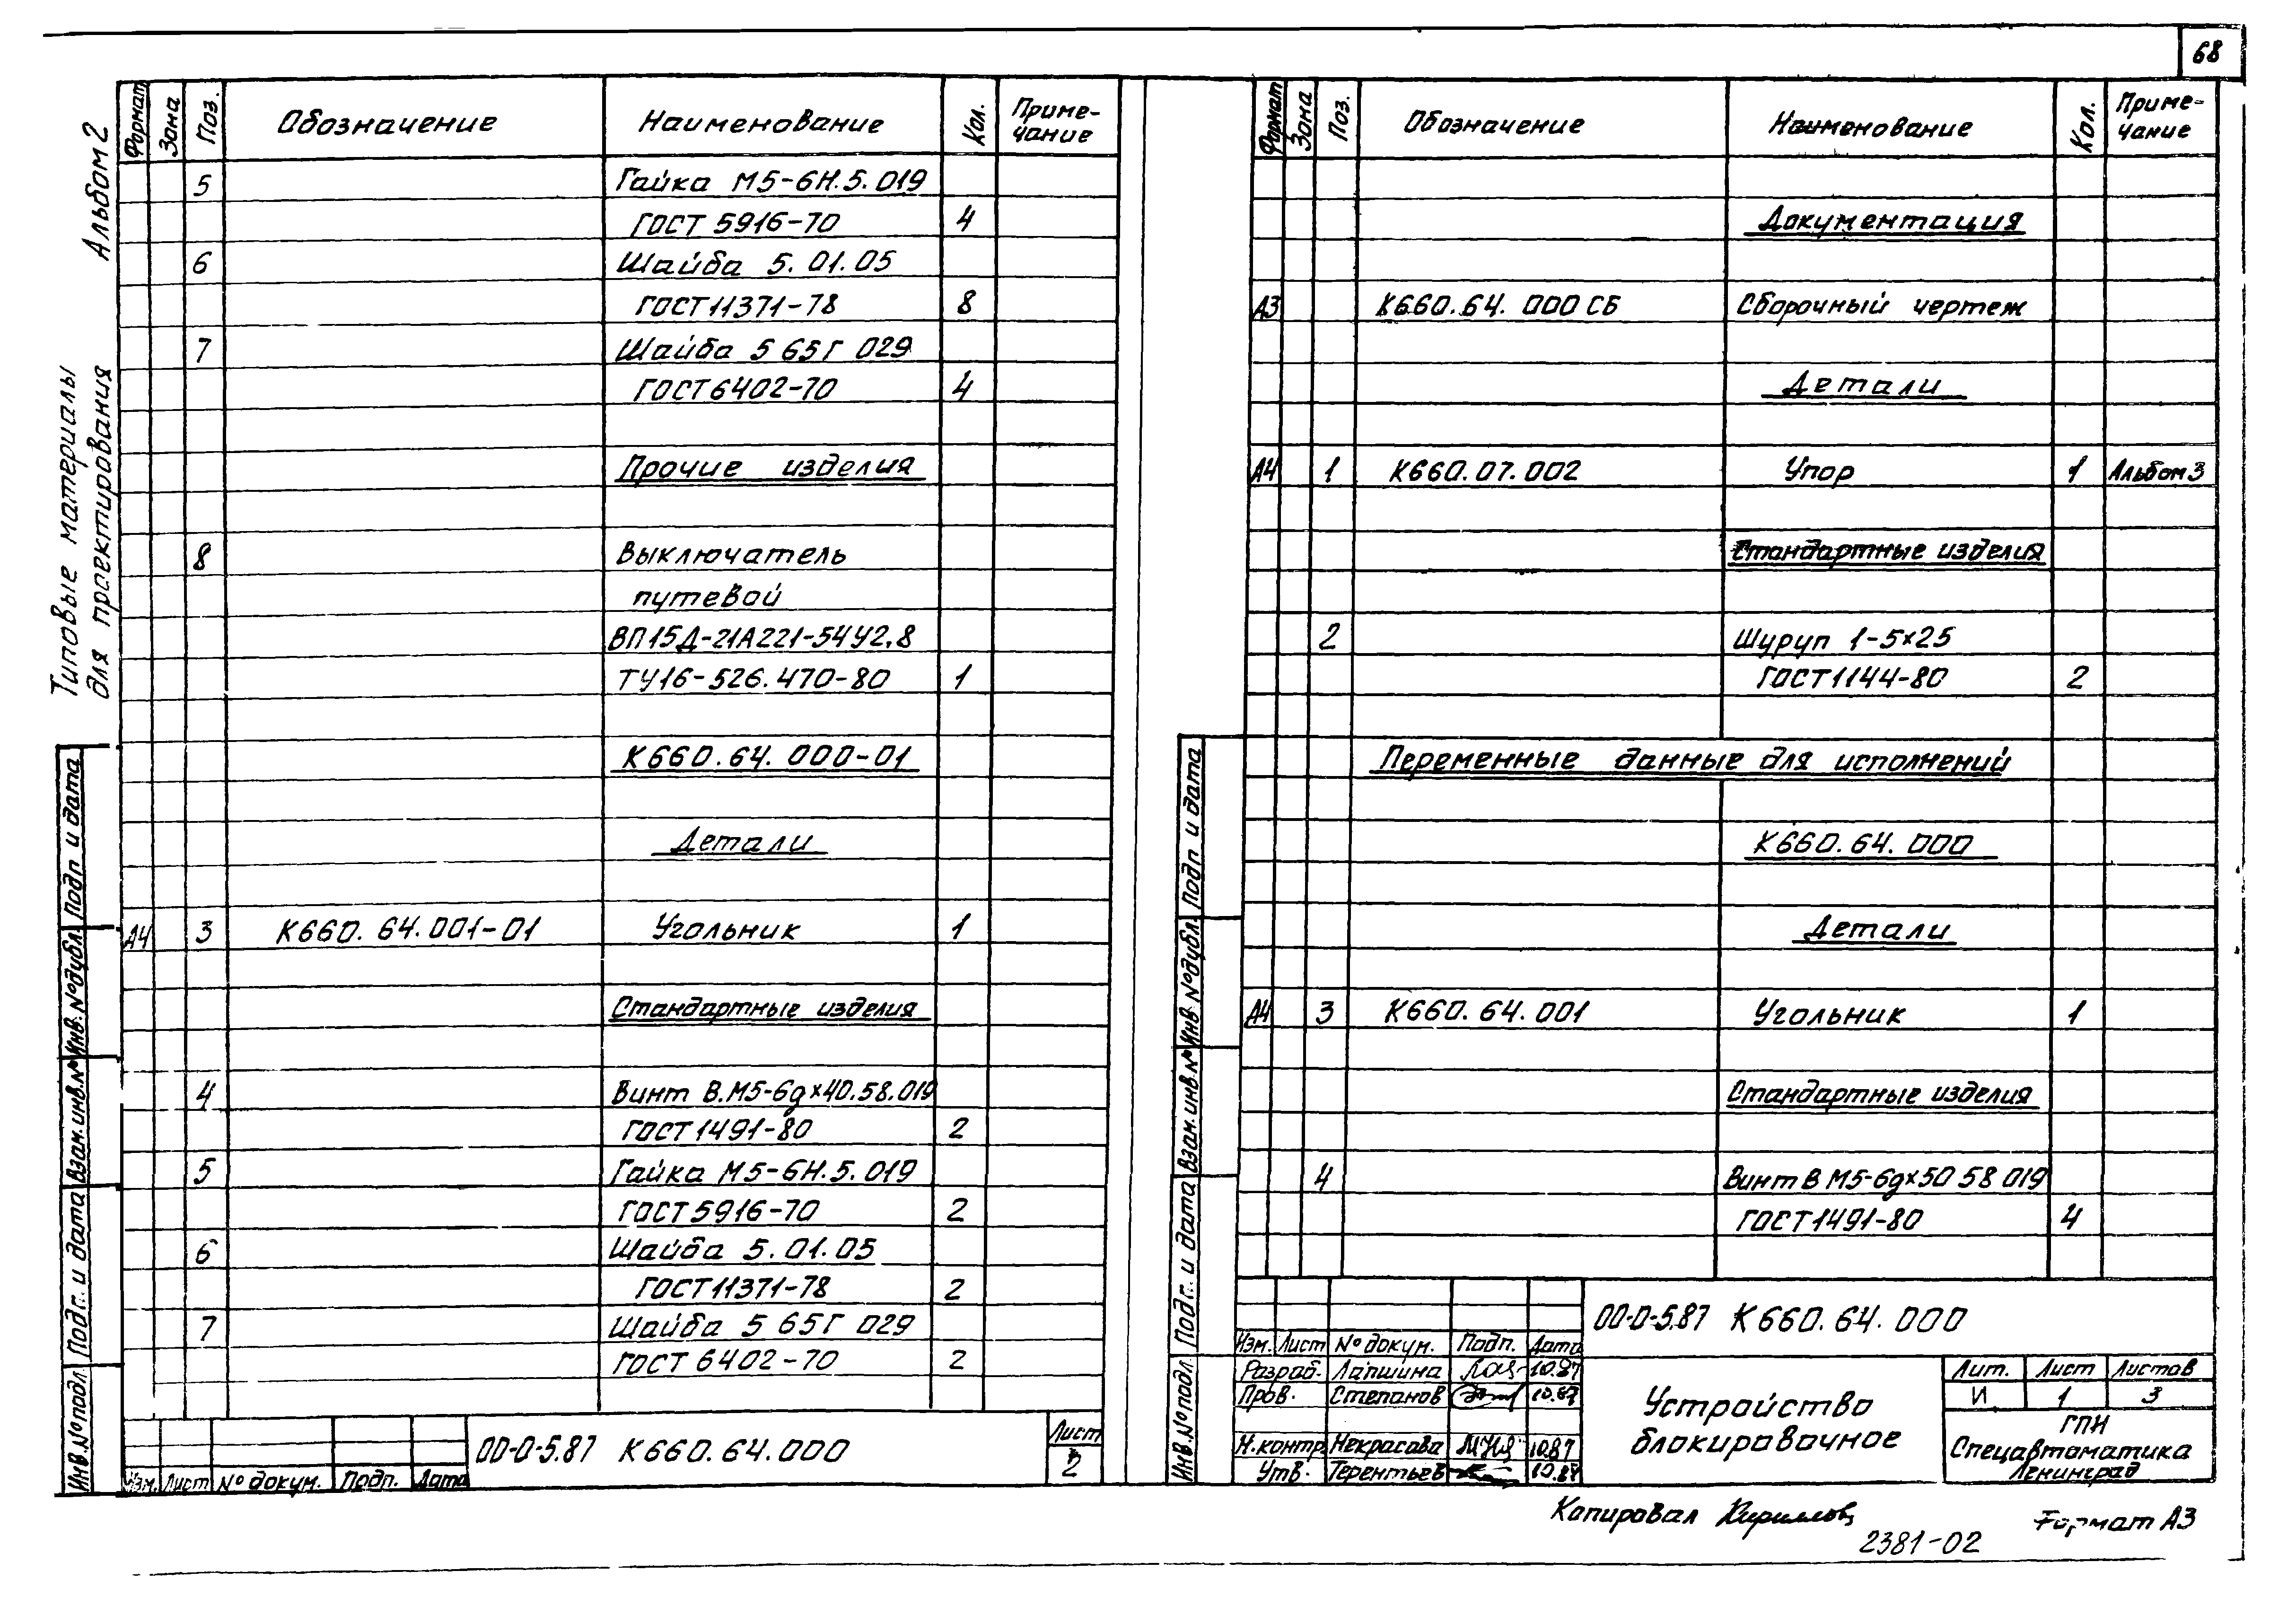 68
Альбом 2
Типовые материалы
для проектирования
Формат Зона Поз. Обозначение Наименование Кол. Приме-
чание
5 Гайка М5-6Н.5.019
ГОСТ 5916-70 4
6 Шайба 5.01.05
ГОСТ 11371-78 8
7 Шайба 5 65Г 029
ГОСТ 6402-70 4
Прочие изделия
8 Выключатель
путевой
ВП15Д-21А221-54У2.8
ТУ16-526.470-80 1
К660.64.000-01
Детали
А4 3 К660.64.001-01 Угольник 1
Стандартные изделия
4 Винт В.М5-6д×40.58.019
ГОСТ 1491-80 2
5 Гайка М5-6Н.5.019
ГОСТ 5916-70 2
6 Шайба 5.01.05
ГОСТ 11371-78 2
7 Шайба 5 65Г 029
ГОСТ 6402-70 2
Изм. Лист № докум. Подп. Дата
00-0-5.87 К660.64.000
Лист
2
Подп и дата
Инв. № дубл.
Взам. инв. №
Подп. и дата
Инв. № подл
Формат Зона Поз. Обозначение Наименование Кол. Приме-
чание
Документация
А3 К660.64.000 СБ Сборочный чертеж
Детали
А4 1 К660.07.002 Упор 1 Альбом 3
Стандартные изделия
2 Шуруп 1-5×25
ГОСТ 1144-80 2
Переменные данные для исполнений
К660.64.000
Детали
А4 3 К660.64.001 Угольник 1
Стандартные изделия
4 Винт В М5-6д×50 58 019
ГОСТ 1491-80 4
Подп и дата
Инв № дубл.
Взам. инв №
Подп. и дата
Инв. № подл.
00-0-5.87 К660.64.000
Изм. Лист № докум. Подп. Дата
Разраб. Лапшина 10.87
Пров. Степанов 10.87
Н.контр. Некрасова 10.87
Утв. Терентьев 10.87
Устройство
блокировочное
Лит. Лист Листов
И 1 3
ГПИ
Спецавтоматика
Ленинград
Копировал
Формат А3
2381-02